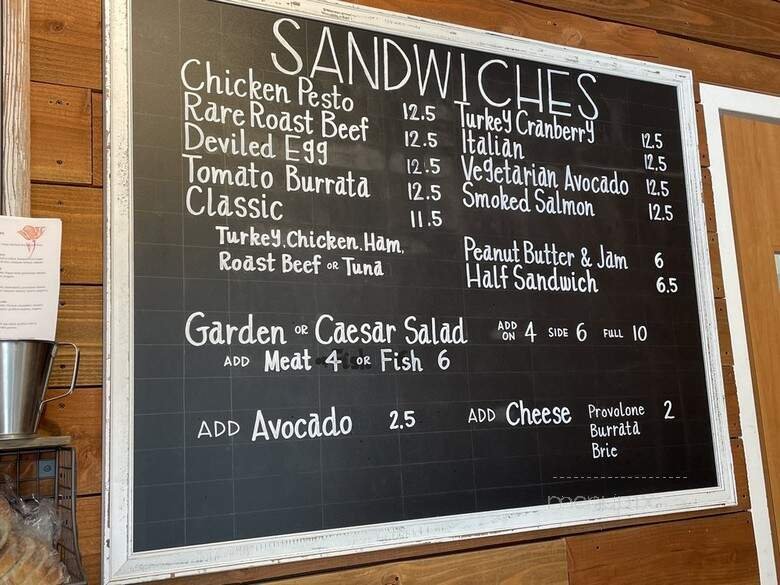 SANDWICHES
Chicken Pesto 12.5
Rare Roast Beef 12.5
Deviled Egg 12.5
Tomato Burrata 12.5
Classic 11.5
Turkey, Chicken, Ham,
Roast Beef or Tuna
Turkey Cranberry 12.5
Italian 12.5
Vegetarian Avocado 12.5
Smoked Salmon 12.5
Peanut Butter & Jam 6
Half Sandwich 6.5
Garden or Caesar Salad ADD ON 4 SIDE 6 FULL 10
ADD Meat 4 or Fish 6
ADD Avocado 2.5
ADD Cheese Provolone 2
Burrata
Brie